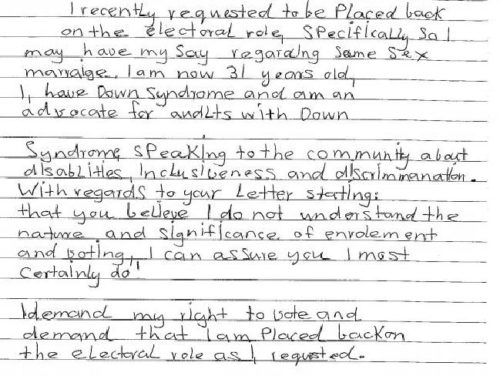 I recently requested to be Placed back
on the electoral role, Specifically So I
may have my Say regarding Same Sex
marraige. I am now 31 years old,
I, have Down Syndrome and am an
advocate for andLts with Down
Syndrome SPeaking to the community about
disablities, inclusiveness and discrimmanation.
With regards to your Letter starting:
that you believe I do not understand the
nature and significance of enrolement
and voting, I can assure you I most
Certainly do!
I demand my right to vote and
demand that I am Placed back on
the electoral role as I requsted.